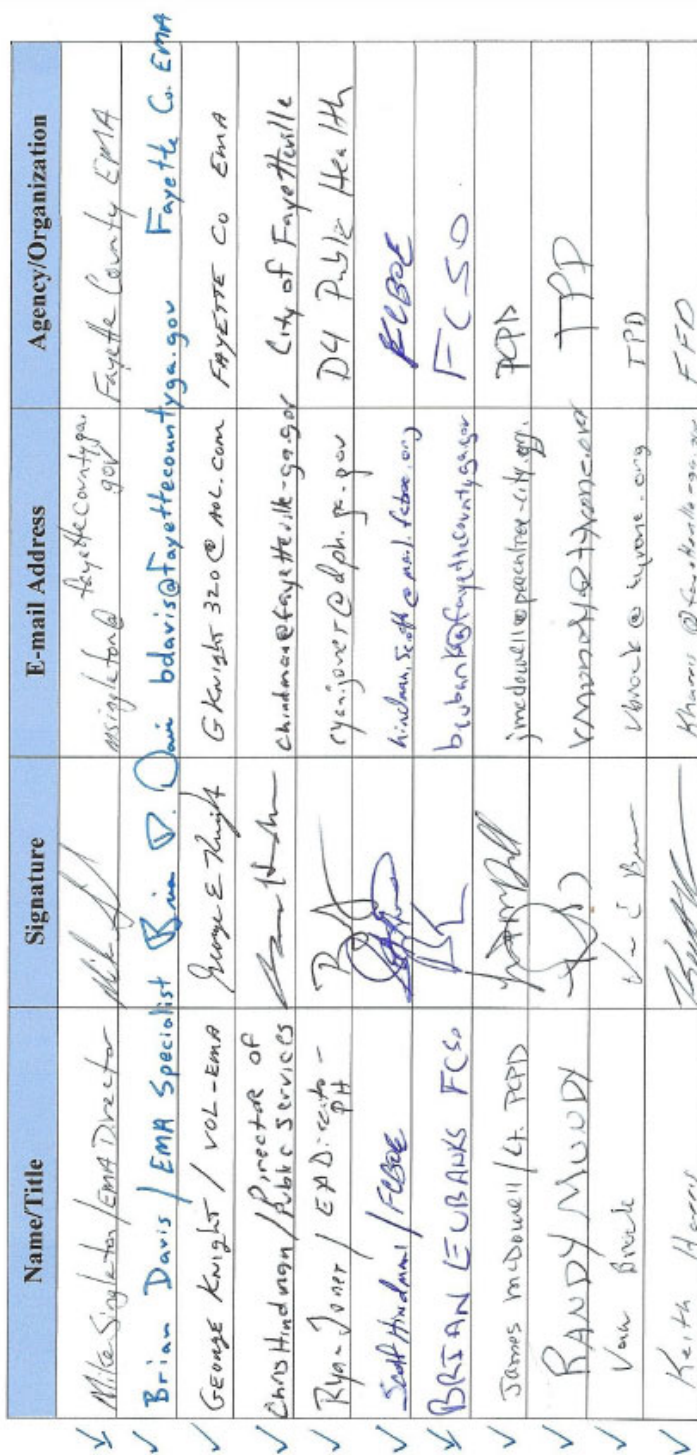 Name/Title Signature E-mail Address Agency/Organization
Mike Singleton/EMA Director msingleton@fayettecountyga.gov Fayette County EMA
Brian Davis / EMA Specialist Brian D. Davis bdavis@fayettecountyga.gov Fayette Co. EMA
George Knight / VOL-EMA George E Knight GKnight320@AOL.com FAYETTE CO EMA
Chris Hindman/Director of Public Services chindman@fayetteville-ga.gov City of Fayetteville
Ryan Jones / EP Director-PH @dph.ga.gov D4 Public Health
Scott Hindman / FCBOE hindman.scott@mail.fcboe.org FCBOE
BRIAN EUBANKS FCSO beubanks@fayettecountyga.gov FCSO
James McDowell / Lt. PCPD jmcdowell@peachtree-city.org PCPD
RANDY MUNDY TPD
Brock vbrock@tyrone.org TPD
Keith Harris FFD